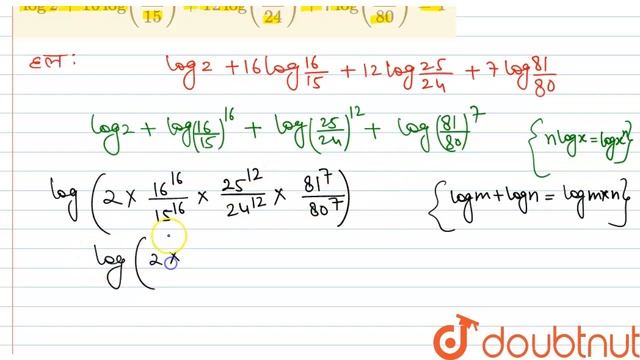 log2 + 16 log(16/15) + 12 log(25/24) + 7 log(81/80) = 1
हल: log2 + 16 log 16/15 + 12 log 25/24 + 7 log 81/80
log2 + log(16/15)^16 + log(25/24)^12 + log(81/80)^7 {n log x = log x^n}
log(2 × 16^16/15^16 × 25^12/24^12 × 81^7/80^7) {log m + log n = log m×n}
log(2 ×
doubtnut